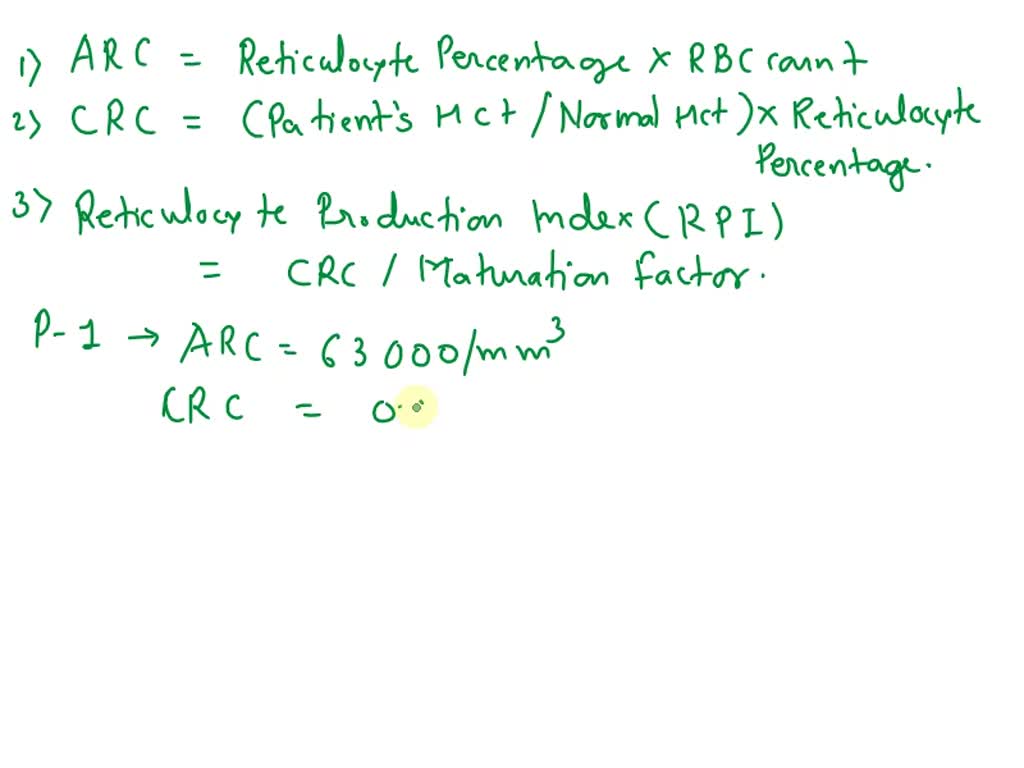 1) ARC = Reticulocyte Percentage × RBC count
2) CRC = (Patient's Hct / Normal Hct) × Reticulocyte
Percentage.
3) Reticulocyte Production Index (RPI)
= CRC / Maturation factor.
P-1 → ARC = 63000/mm³
CRC = 0.